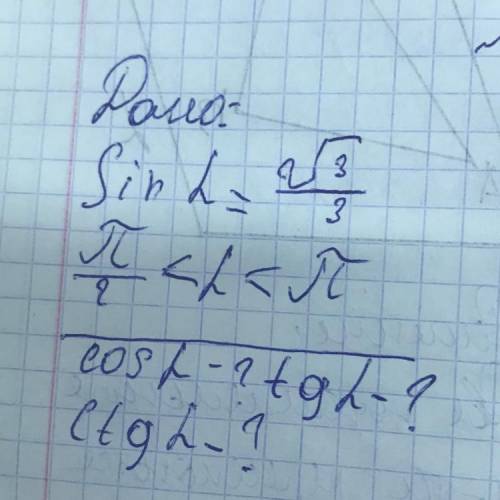 Дано:
Sin α = 2√3/3
π/2 < α < π
cos α - ? tg α - ?
ctg α - ?